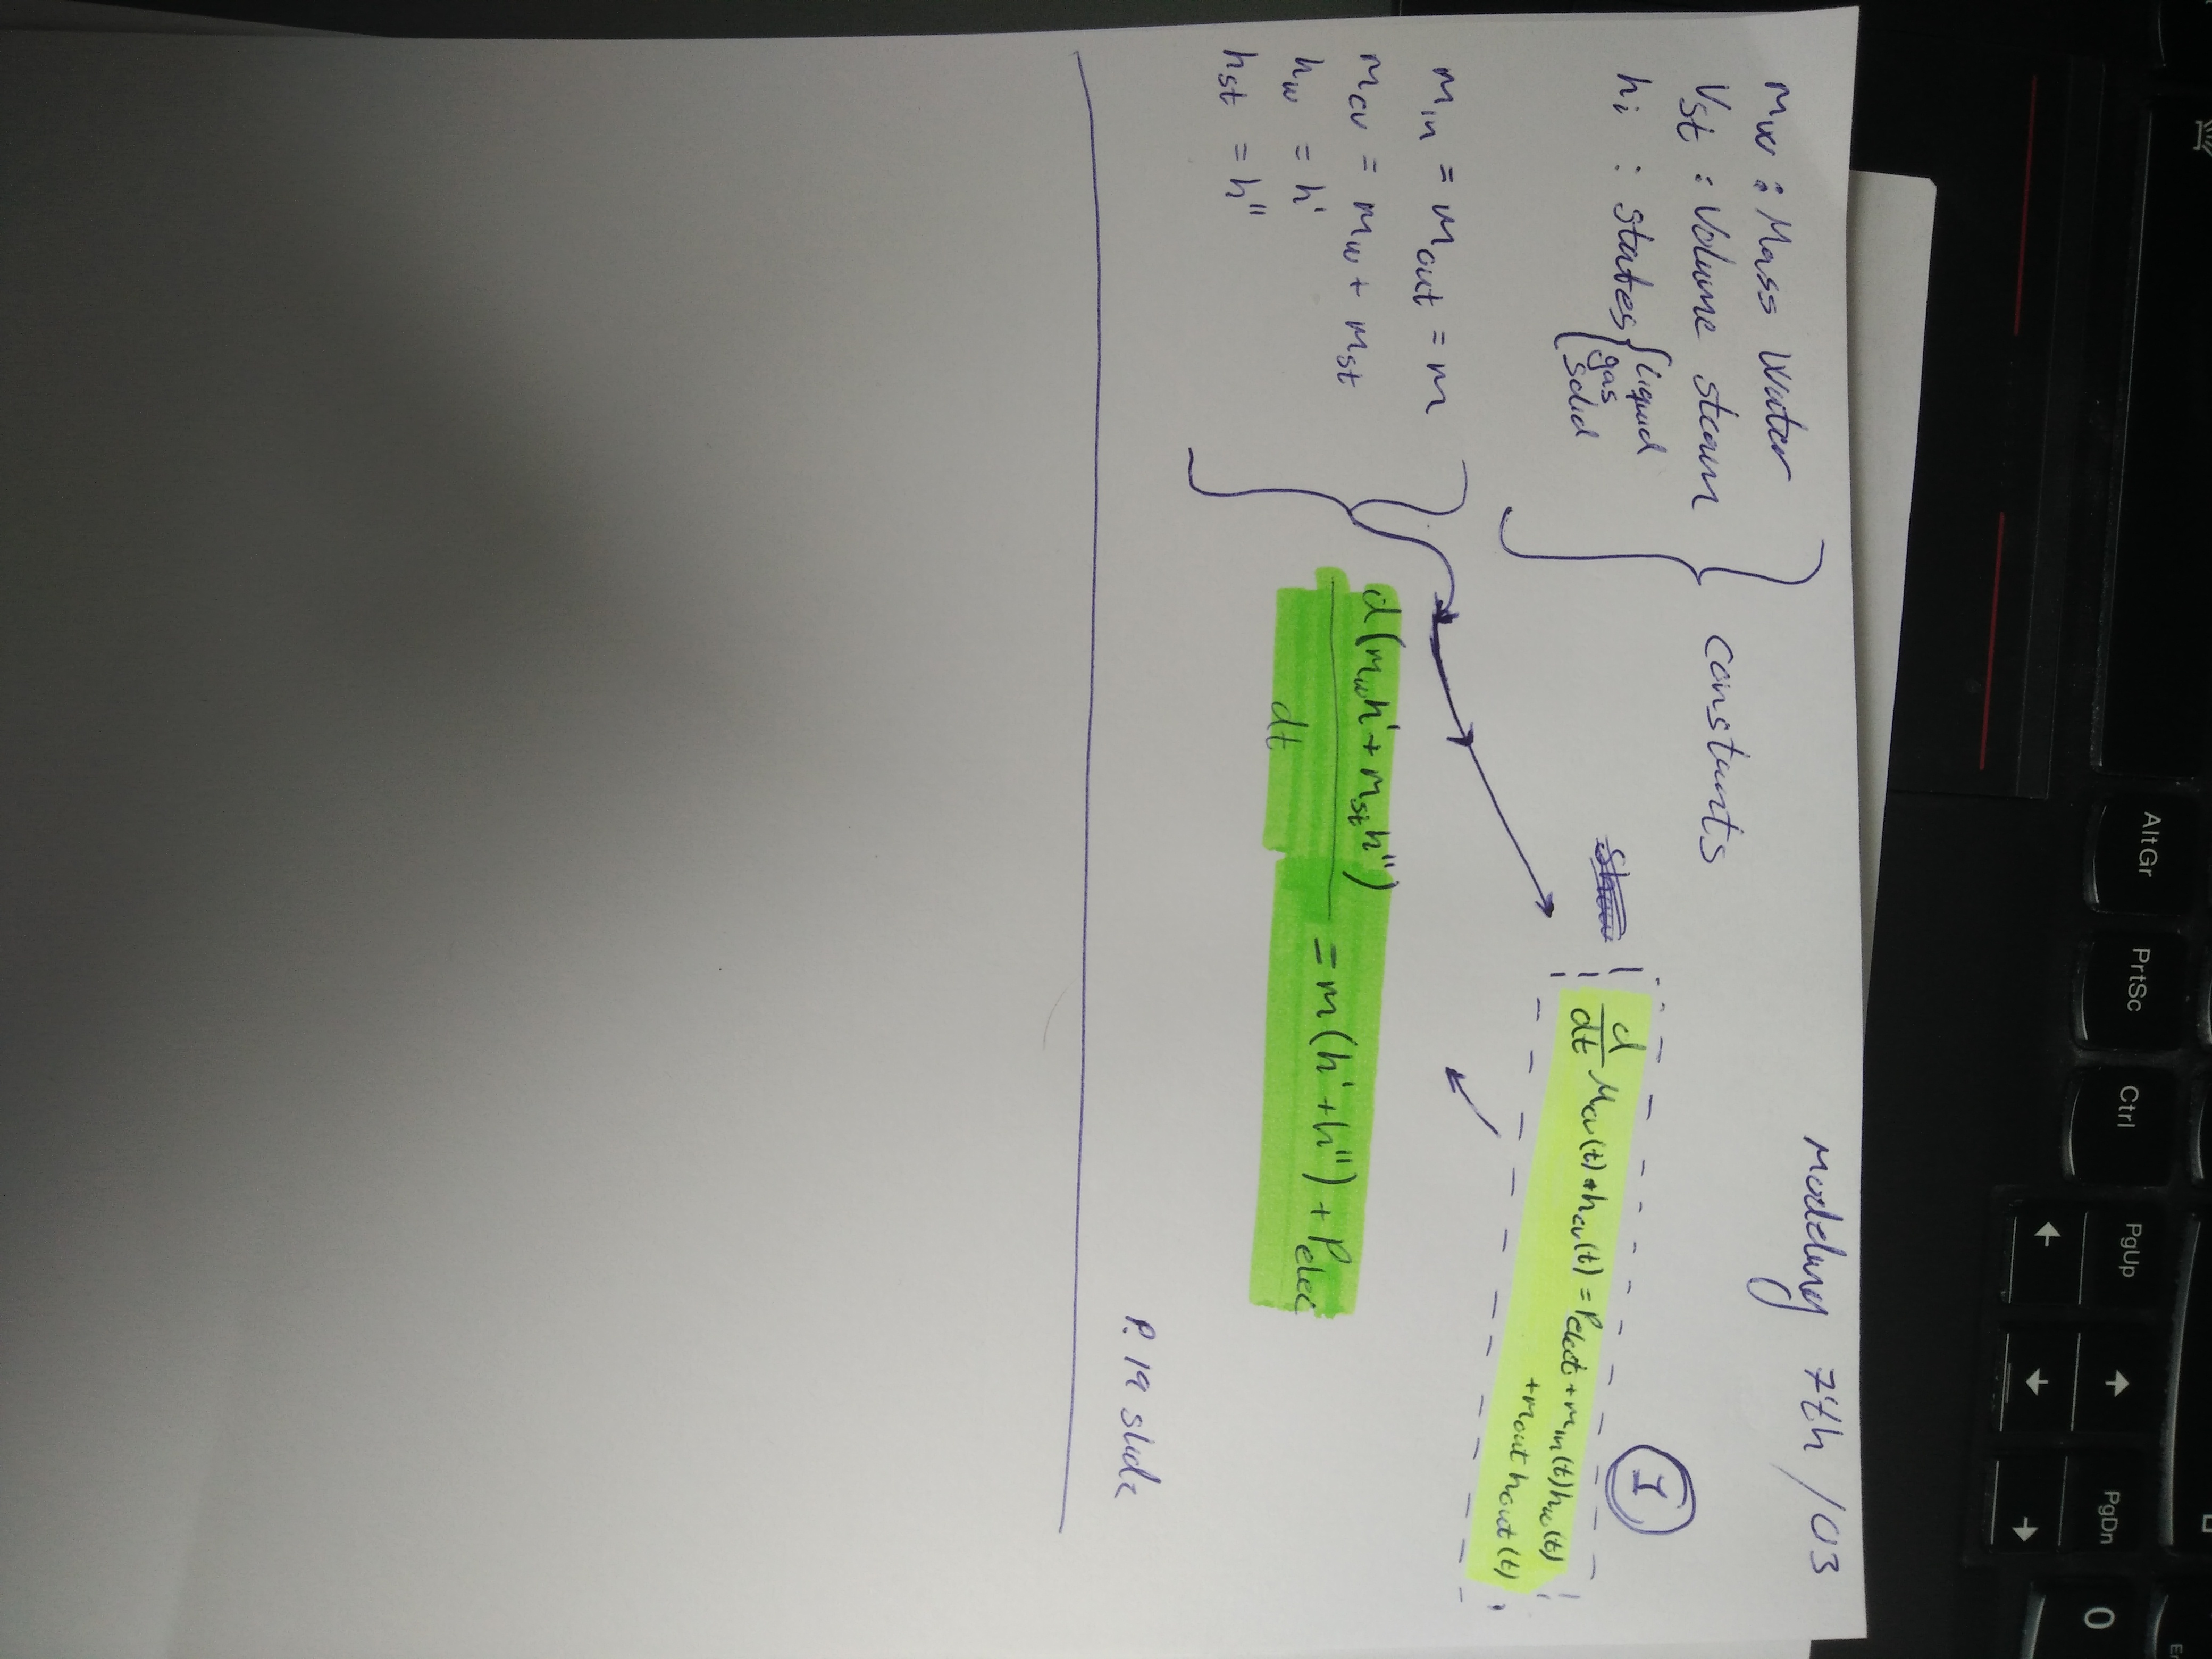 AltGr
PrtSc
Ctrl
PgUp
PgDn
0
Modeling 7th / 03
mw : Mass Water
Vst : Volume steam
hi : states { liquid
gas
solid
constants
1
d/dt Mcv(t) • hcv(t) = Pelect + min(t) hw(t)
+ mout hout (t)
min = mout = m
mcv = mw + mst
hw = h'
hst = h"
d(mwh' + msth") / dt = m (h' + h") + Pelec
P. 19 slide